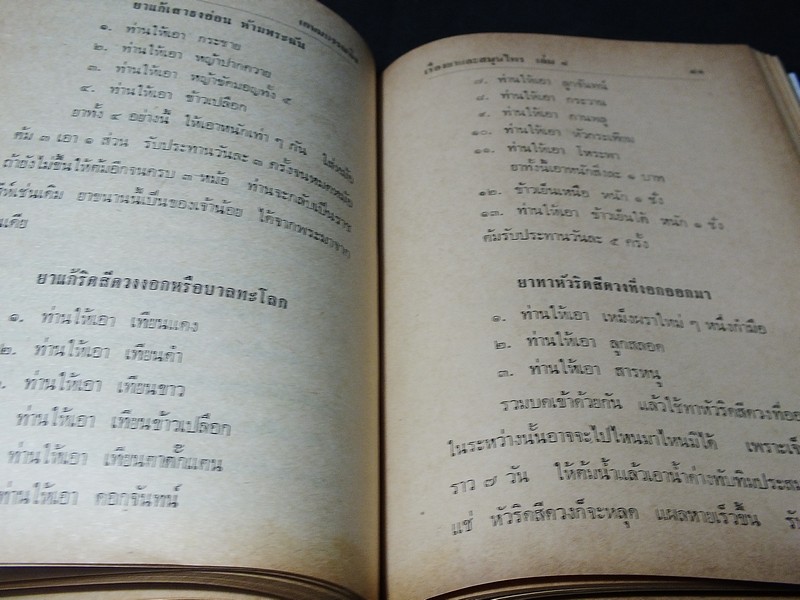 ยาแก้เสาธงอ่อน ห้ามพระฉัน
๑. ท่านให้เอา กระชาย
๒. ท่านให้เอา หญ้าปากควาย
๓. ท่านให้เอา หญ้าขัดมอญทั้ง ๕
๔. ท่านให้เอา ข้าวเปลือก
ยาทั้ง ๔ อย่างนี้ ให้เอาหนักเท่า ๆ กัน ใส่หม้อ
ต้ม ๓ เอา ๑ ส่วน รับประทานวันละ ๓ ครั้งจนหมดหม้อ
ถ้ายังไม่ขึ้นให้ต้มอีกจนครบ ๓ หม้อ ท่านจะกลับเป็น
เช่นเดิม ยาขนานนี้เป็นของเจ้าน้อย ได้จากพระมาจาก
ยาแก้ริดสีดวงงอกหรือบาลทะโลก
๑. ท่านให้เอา เทียนแดง
๒. ท่านให้เอา เทียนดำ
ท่านให้เอา เทียนขาว
ท่านให้เอา เทียนข้าวเปลือก
ท่านให้เอา เทียนตาตั๊กแตน
ท่านให้เอา ดอกจันทน์
เรื่องยาและสมุนไพร เล่ม ๔
๗. ท่านให้เอา ลูกจันทน์
๘. ท่านให้เอา กระวาน
๙. ท่านให้เอา กานพลู
๑๐. ท่านให้เอา หัวกระเทียม
๑๑. ท่านให้เอา โหระพา
ยาทั้งนี้เอาหนักสิ่งละ ๑ บาท
๑๒. ข้าวเย็นเหนือ หนัก ๑ ชั่ง
๑๓. ท่านให้เอา ข้าวเย็นใต้ หนัก ๑ ชั่ง
ต้มรับประทานวันละ ๕ ครั้ง
ยาทาหัวริดสีดวงที่งอกออกมา
๑. ท่านให้เอา เหมือง ใหม่ ๆ หนึ่งกำมือ
๒. ท่านให้เอา ลูกสลอด
๓. ท่านให้เอา สารหนู
รวมบดเข้าด้วยกัน แล้วใช้ทาหัวริดสีดวงที่ออก
ในระหว่างนั้นอาจจะไปไหนมาไหนมิได้ เพราะเจ็บ
ราว ๗ วัน ให้ต้มน้ำแล้วเอาน้ำด่างทับทิมประสม
แช่ หัวริดสีดวงก็จะหลุด แผลหายเร็วขึ้น